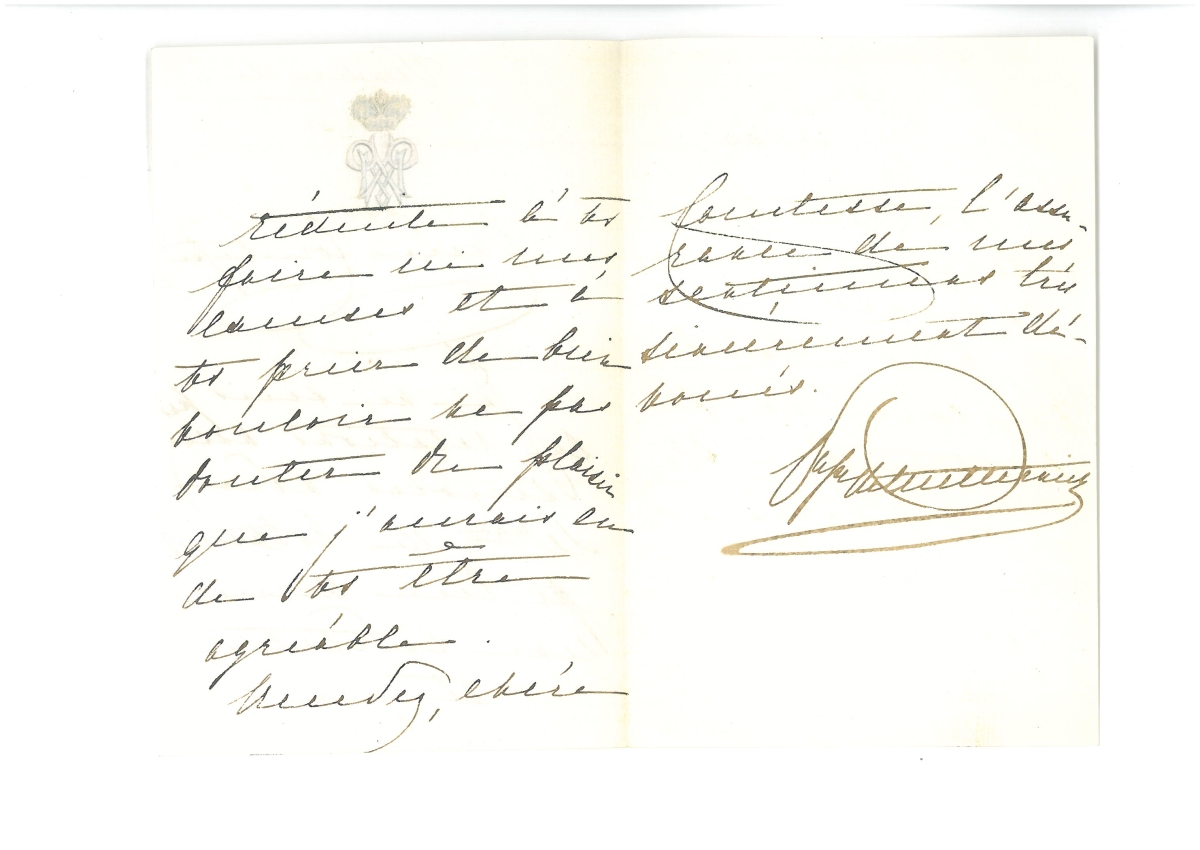 réduite à vs
faire ici mes
excuses et à
vs prier de bien
vouloir ne pas
douter du plaisir
que j'aurais eu
de vs être
agréable.
Veuillez, chère
Comtesse, l'assu-
rance de mes
sentimens très
sincèrement dé-
voués.